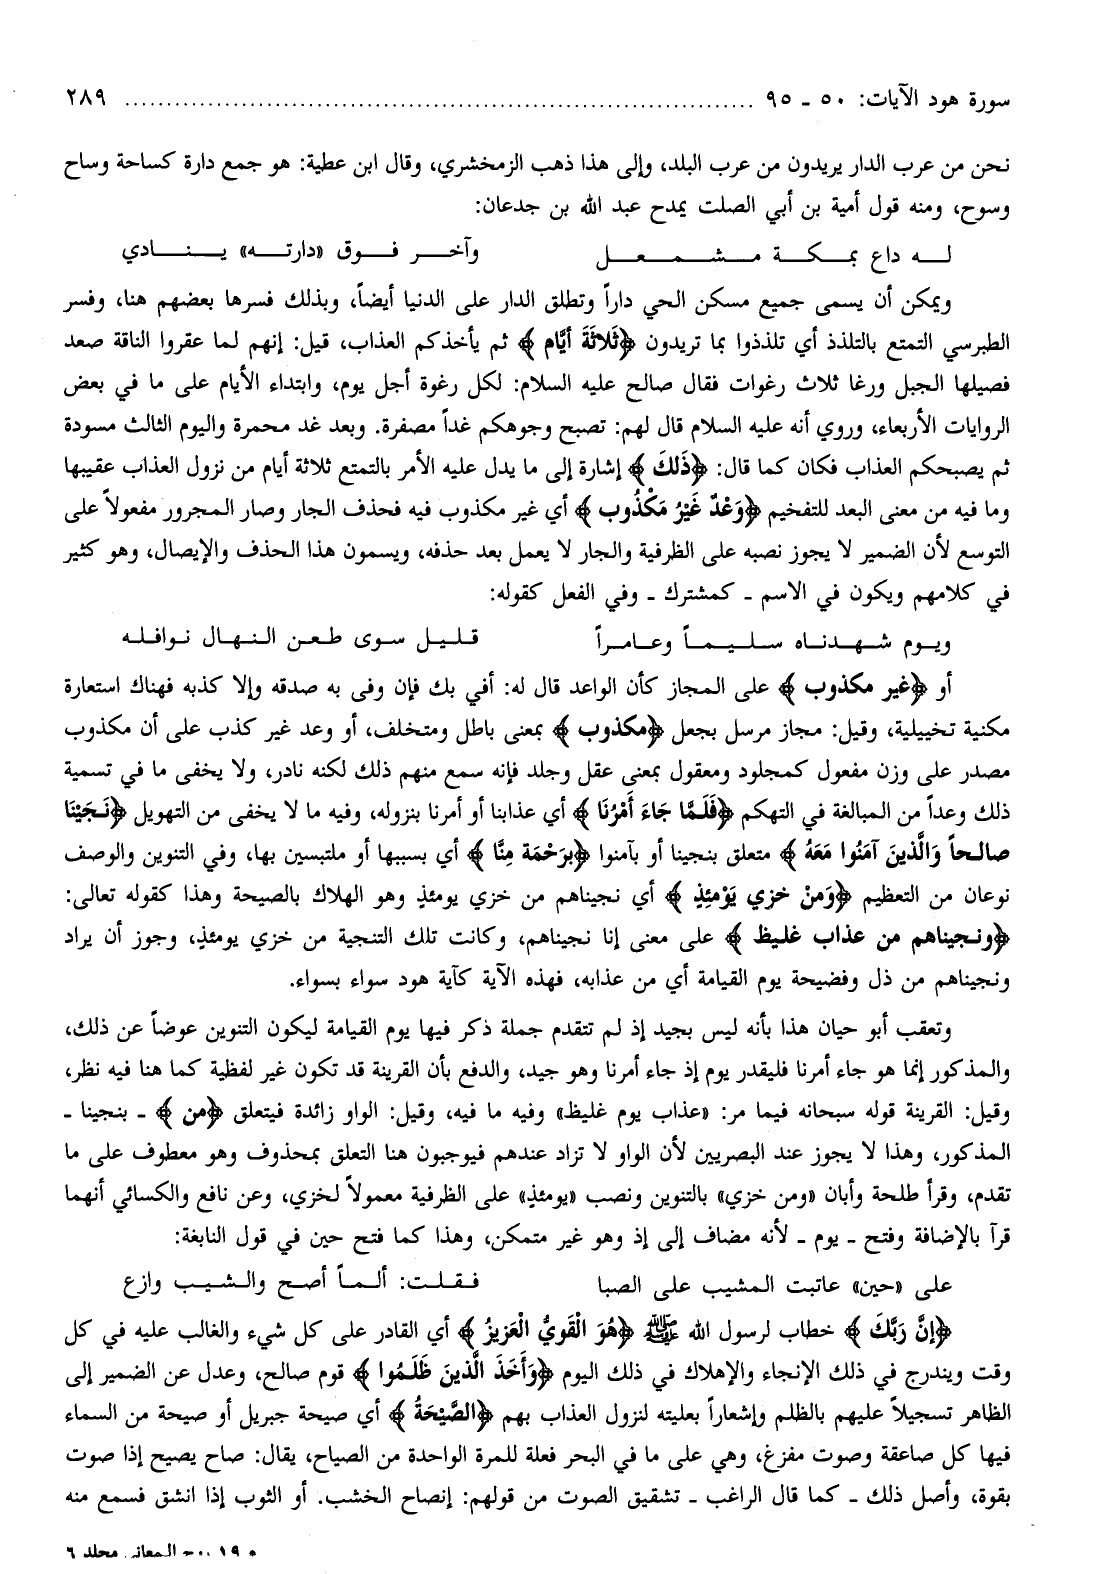 سورة هود الآيات: ٥٠ ـ ٩٥ ................................................................................ ٢٨٩
نحن من عرب الدار يريدون من عرب البلد، وإلى هذا ذهب الزمخشري، وقال ابن عطية: هو جمع دارة كساحة وساح
وسوح، ومنه قول أمية بن أبي الصلت يمدح عبد الله بن جدعان:
لـــه داع بمـكـة مـشـمـعـل وآخـر فـوق «دارتـه» يـنـادي
ويمكن أن يسمى جميع مسكن الحي داراً وتطلق الدار على الدنيا أيضاً، وبذلك فسرها بعضهم هنا، وفسر
الطبرسي التمتع بالتلذذ أي تلذذوا بما تريدون ﴿ثَلاثَةَ أَيَّام﴾ ثم يأخذكم العذاب، قيل: إنهم لما عقروا الناقة صعد
فصيلها الجبل ورغا ثلاث رغوات فقال صالح عليه السلام: لكل رغوة أجل يوم، وابتداء الأيام على ما في بعض
الروايات الأربعاء، وروي أنه عليه السلام قال لهم: تصبح وجوهكم غداً مصفرة. وبعد غد محمرة واليوم الثالث مسودة
ثم يصبحكم العذاب فكان كما قال: ﴿ذَلكَ﴾ إشارة إلى ما يدل عليه الأمر بالتمتع ثلاثة أيام من نزول العذاب عقيبها
وما فيه من معنى البعد للتفخيم ﴿وَعْدٌ غَيْرُ مَكْذُوب﴾ أي غير مكذوب فيه فحذف الجار وصار المجرور مفعولاً على
التوسع لأن الضمير لا يجوز نصبه على الظرفية والجار لا يعمل بعد حذفه، ويسمون هذا الحذف والإيصال، وهو كثير
في كلامهم ويكون في الاسم ـ كمشترك ـ وفي الفعل كقوله:
ويـوم شـهـدنـاه سـليـماً وعـامـراً قـلـيـل سـوى طـعـن الـنـهـال نـوافـلـه
أو ﴿غير مكذوب﴾ على المجاز كأن الواعد قال له: أفي بك فإن وفى به صدقه وإلا كذبه فهناك استعارة
مكنية تخييلية، وقيل: مجاز مرسل بجعل ﴿مكذوب﴾ بمعنى باطل ومتخلف، أو وعد غير كذب على أن مكذوب
مصدر على وزن مفعول كمجلود ومعقول بمعنى عقل وجلد فإنه سمع منهم ذلك لكنه نادر، ولا يخفى ما في تسمية
ذلك وعداً من المبالغة في التهكم ﴿فَلَمَّا جَاءَ أَمْرُنَا﴾ أي عذابنا أو أمرنا بنزوله، وفيه ما لا يخفى من التهويل ﴿نَجَّيْنَا
صالحاً وَالَّذينَ آمَنُوا مَعَهُ﴾ متعلق بنجينا أو بآمنوا ﴿برَحْمَة منَّا﴾ أي بسببها أو ملتبسين بها، وفي التنوين والوصف
نوعان من التعظيم ﴿وَمنْ خزي يَوْمئذٍ﴾ أي نجيناهم من خزي يومئذٍ وهو الهلاك بالصيحة وهذا كقوله تعالى:
﴿ونجيناهم من عذاب غليظ﴾ على معنى إنا نجيناهم، وكانت تلك التنجية من خزي يومئذٍ، وجوز أن يراد
ونجيناهم من ذل وفضيحة يوم القيامة أي من عذابه، فهذه الآية كآية هود سواء بسواء.
وتعقب أبو حيان هذا بأنه ليس بجيد إذ لم تتقدم جملة ذكر فيها يوم القيامة ليكون التنوين عوضاً عن ذلك،
والمذكور إنما هو جاء أمرنا فليقدر يوم إذ جاء أمرنا وهو جيد، والدفع بأن القرينة قد تكون غير لفظية كما هنا فيه نظر،
وقيل: القرينة قوله سبحانه فيما مر: «عذاب يوم غليظ» وفيه ما فيه، وقيل: الواو زائدة فيتعلق ﴿من﴾ ـ بنجينا ـ
المذكور، وهذا لا يجوز عند البصريين لأن الواو لا تزاد عندهم فيوجبون هنا التعلق بمحذوف وهو معطوف على ما
تقدم، وقرأ طلحة وأبان «ومن خزي» بالتنوين ونصب «يومئذٍ» على الظرفية معمولاً لخزي، وعن نافع والكسائي أنهما
قرآ بالإضافة وفتح ـ يوم ـ لأنه مضاف إلى إذ وهو غير متمكن، وهذا كما فتح حين في قول النابغة:
على «حين» عاتبت المشيب على الصبا فـقـلـت: ألـمـاً أصح والـشـيـب وازع
﴿إنَّ رَبَّكَ﴾ خطاب لرسول الله ﷺ ﴿هُوَ الْقَويُّ الْعَزيزُ﴾ أي القادر على كل شيء والغالب عليه في كل
وقت ويندرج في ذلك الإنجاء والإهلاك في ذلك اليوم ﴿وَأَخَذَ الَّذينَ ظَلَمُوا﴾ قوم صالح، وعدل عن الضمير إلى
الظاهر تسجيلاً عليهم بالظلم وإشعاراً بعليته لنزول العذاب بهم ﴿الصَّيْحَةُ﴾ أي صيحة جبريل أو صيحة من السماء
فيها كل صاعقة وصوت مفزغ، وهي على ما في البحر فعلة للمرة الواحدة من الصياح، يقال: صاح يصيح إذا صوت
بقوة، وأصل ذلك ـ كما قال الراغب ـ تشقيق الصوت من قولهم: إنصاح الخشب. أو الثوب إذا انشق فسمع منه
١٩ المعاني مجلد ٦